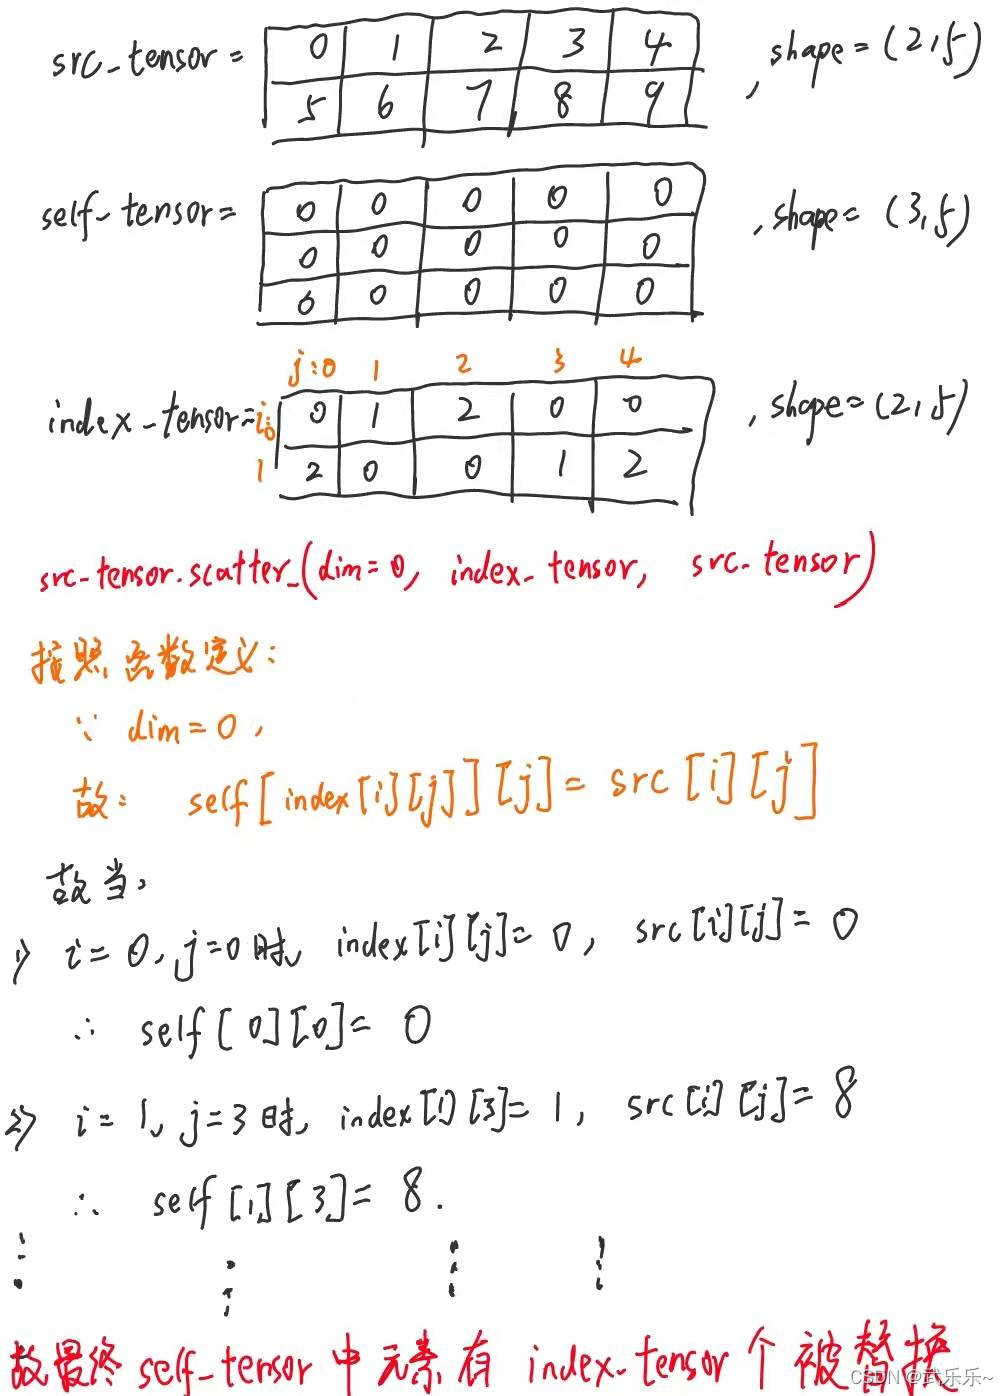 src_tensor = 0 1 2 3 4 , shape = (2,5)
5 6 7 8 9
self_tensor = 0 0 0 0 0 , shape = (3,5)
0 0 0 0 0
0 0 0 0 0
j:0 1 2 3 4
index_tensor = i:0 0 1 2 0 0 , shape = (2,5)
1 2 0 0 1 2
src_tensor.scatter_(dim=0, index_tensor, src_tensor)
按照函数定义:
∵ dim=0,
故: self[index[i][j]][j] = src[i][j]
故当,
1) i=0, j=0时, index[i][j]=0, src[i][j]=0
∴ self[0][0]=0
2) i=1, j=3时, index[1][3]=1, src[i][j]=8
∴ self[1][3]=8.
故最终 self_tensor 中元素有 index_tensor 个被替换
CSDN @武乐乐~